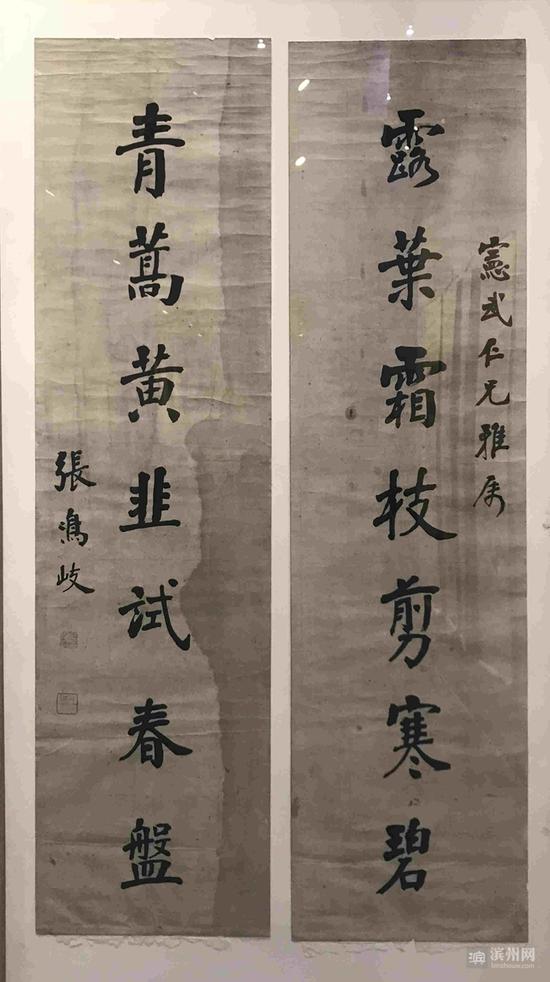 憲武仁兄雅属
露葉霜枝剪寒碧
青蒿黄韭試春盤
張鳴岐
滨州网
binzhouw.com